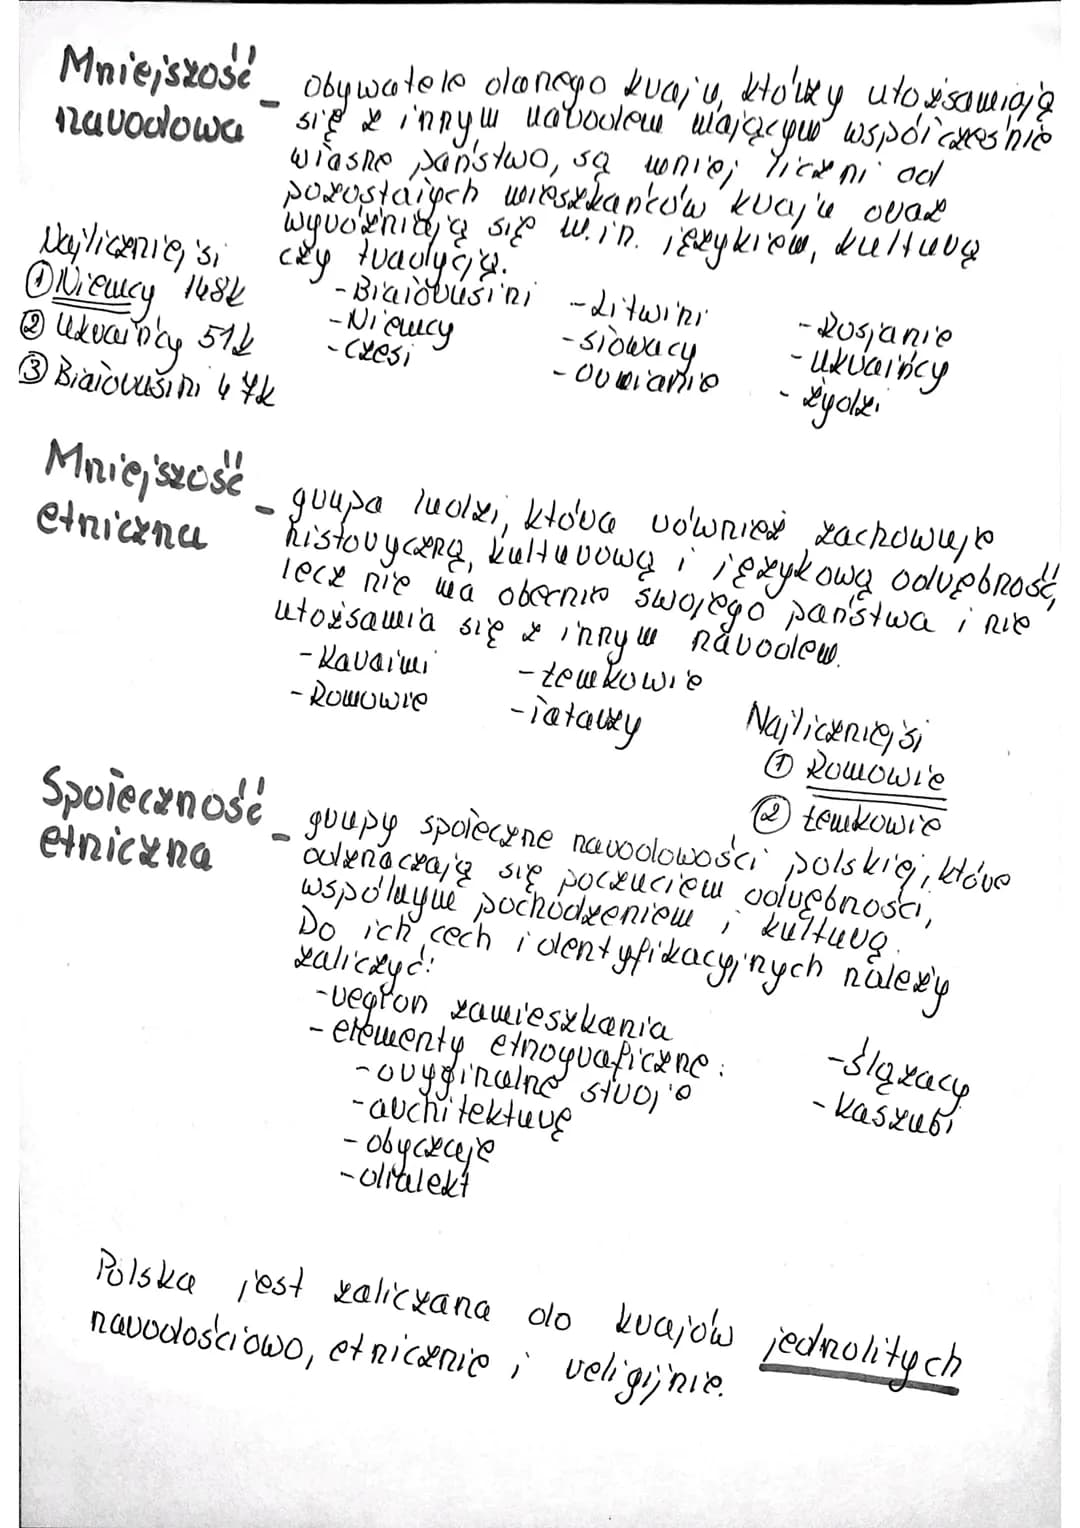 Mniejszość
narodowa - obywatele danego kraju, którzy utożsamiają
się z innym narodem mającym współcześnie
własne państwo, są mniej liczni od
pozostałych mieszkańców kraju oraz
wyróżniają się m.in. językiem, kulturą
czy tradycją.
- Białorusini
- Niemcy
- Czesi
- Litwini
- Słowacy
- Ormianie
- Rosjanie
- Ukraińcy
- Żydzi
Najliczniejsi
① Niemcy 148k
② Ukraińcy 51k
③ Białorusini 47k
Mniejszość
etniczna - grupa ludzi, która również zachowuje
historyczną, kulturową i językową odrębność,
lecz nie ma obecnie swojego państwa i nie
utożsamia się z innym narodem.
- Karaimi
- Romowie
- Łemkowie
- Tatarzy
Najliczniejsi
① Romowie
② Łemkowie
Społeczność
etniczna - grupy społeczne narodowości polskiej, które
odznaczają się poczuciem odrębności,
wspólnym pochodzeniem i kulturą.
Do ich cech identyfikacyjnych należy
zaliczyć:
- region zamieszkania
- elementy etnograficzne:
- oryginalne stroje
- architekturę
- obyczaje
- dialekt
- Ślązacy
- Kaszubi
Polska jest zaliczana do krajów jednolitych
narodościowo, etnicznie i religijnie.